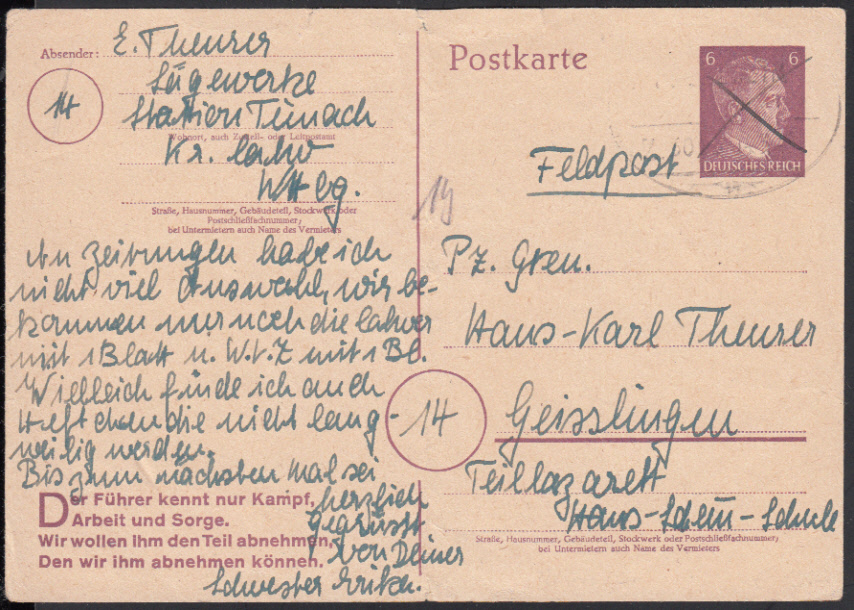 Absender: E. Theurer
Sägewerke
14
Station Teinach
Wohnort, auch Zustell- oder Leitpostamt
Kr. Calw
Wttbg.
Straße, Hausnummer, Gebäudeteil, Stockwerk oder
Postschließfachnummer;
bei Untermietern auch Name des Vermieters
An Zeitungen habe ich
nicht viel Auswahl, wir be-
kommen nur noch die Calwer
mit 1 Blatt u. W.t.Z mit 1 Bl.
Vielleich finde ich auch
Heftchen die nicht lang-
weilig werden.
Bis zum nächsten Mal sei
herzlich
gegrüsst
von Deiner
Schwester Erika.
Der Führer kennt nur Kampf,
Arbeit und Sorge.
Wir wollen ihm den Teil abnehmen,
Den wir ihm abnehmen können.
Postkarte
6 6
DEUTSCHES REICH
Feldpost
19
Pz. Gren.
Hans-Karl Theurer
14
Geisslingen
Teillazarett
Hans-Schem-Schule
Straße, Hausnummer, Gebäudeteil, Stockwerk oder Postschließfachnummer;
bei Untermietern auch Name des Vermieters